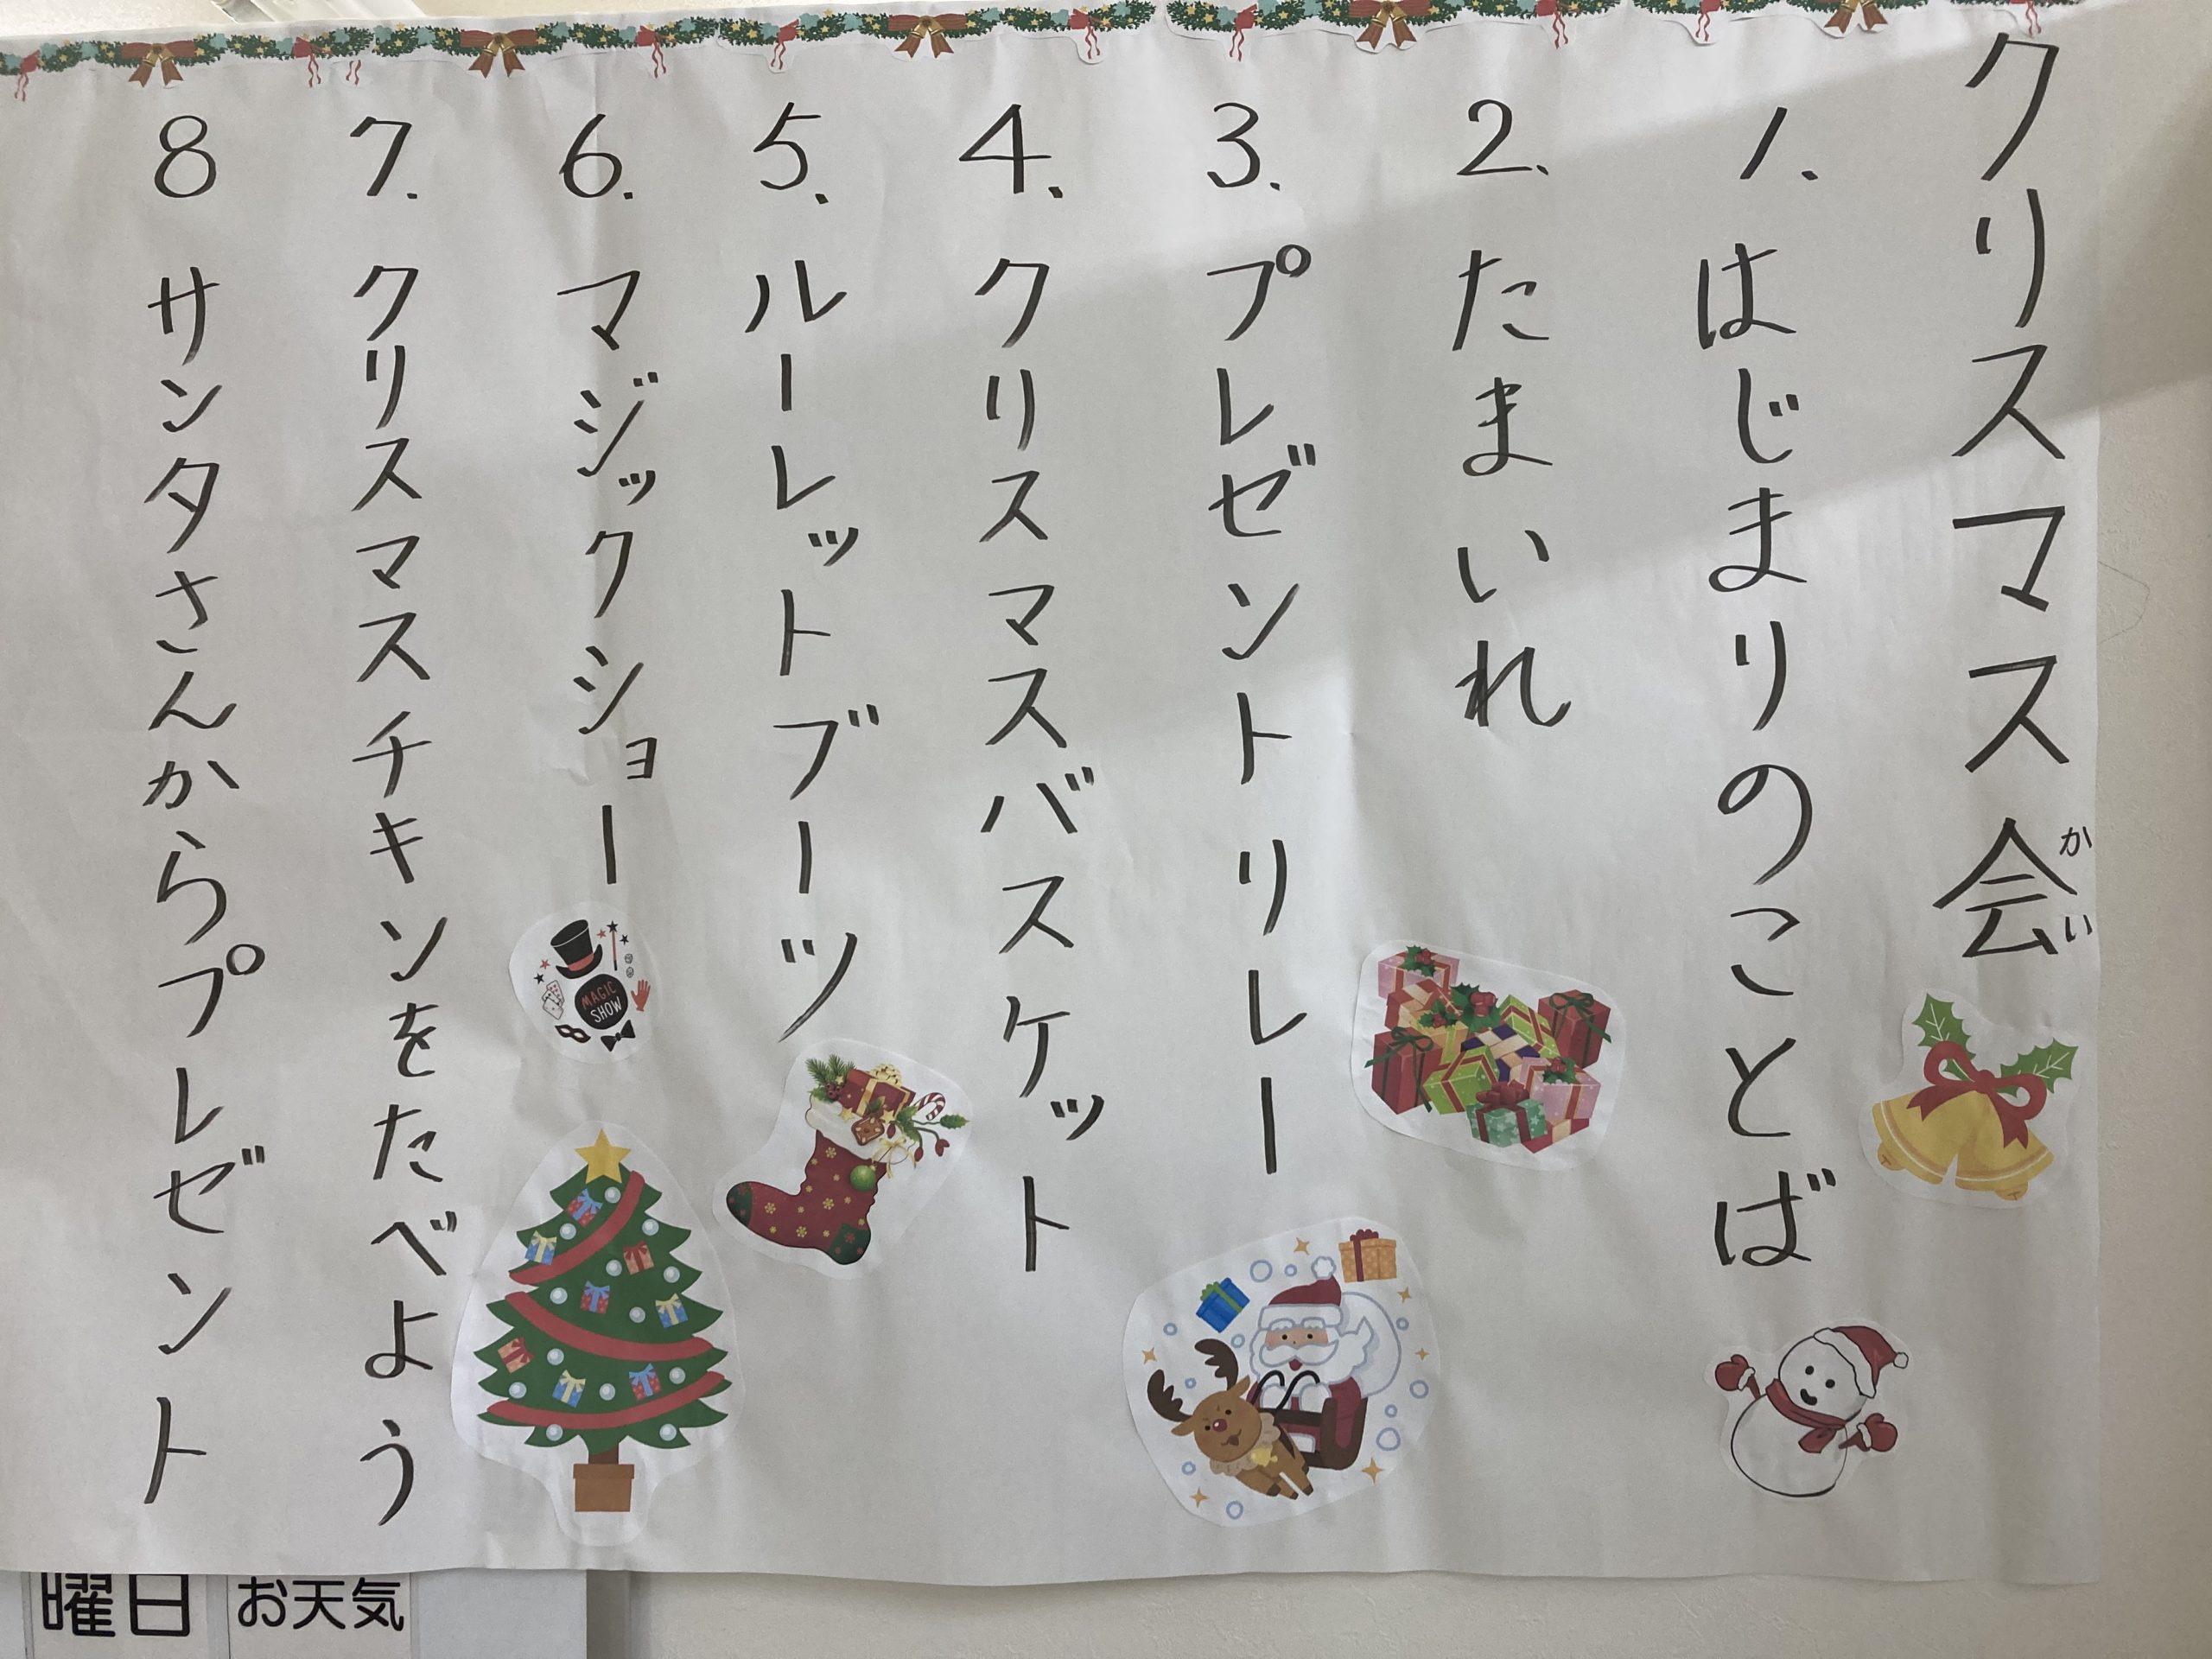 クリスマス会
かい
1. はじまりのことば
2. たまいれ
3. プレゼントリレー
4. クリスマスバスケット
5. ルーレットブーツ
6. マジックショー
MAGIC
SHOW
7. クリスマスチキンをたべよう
8 サンタさんからプレゼント
曜日
お天気